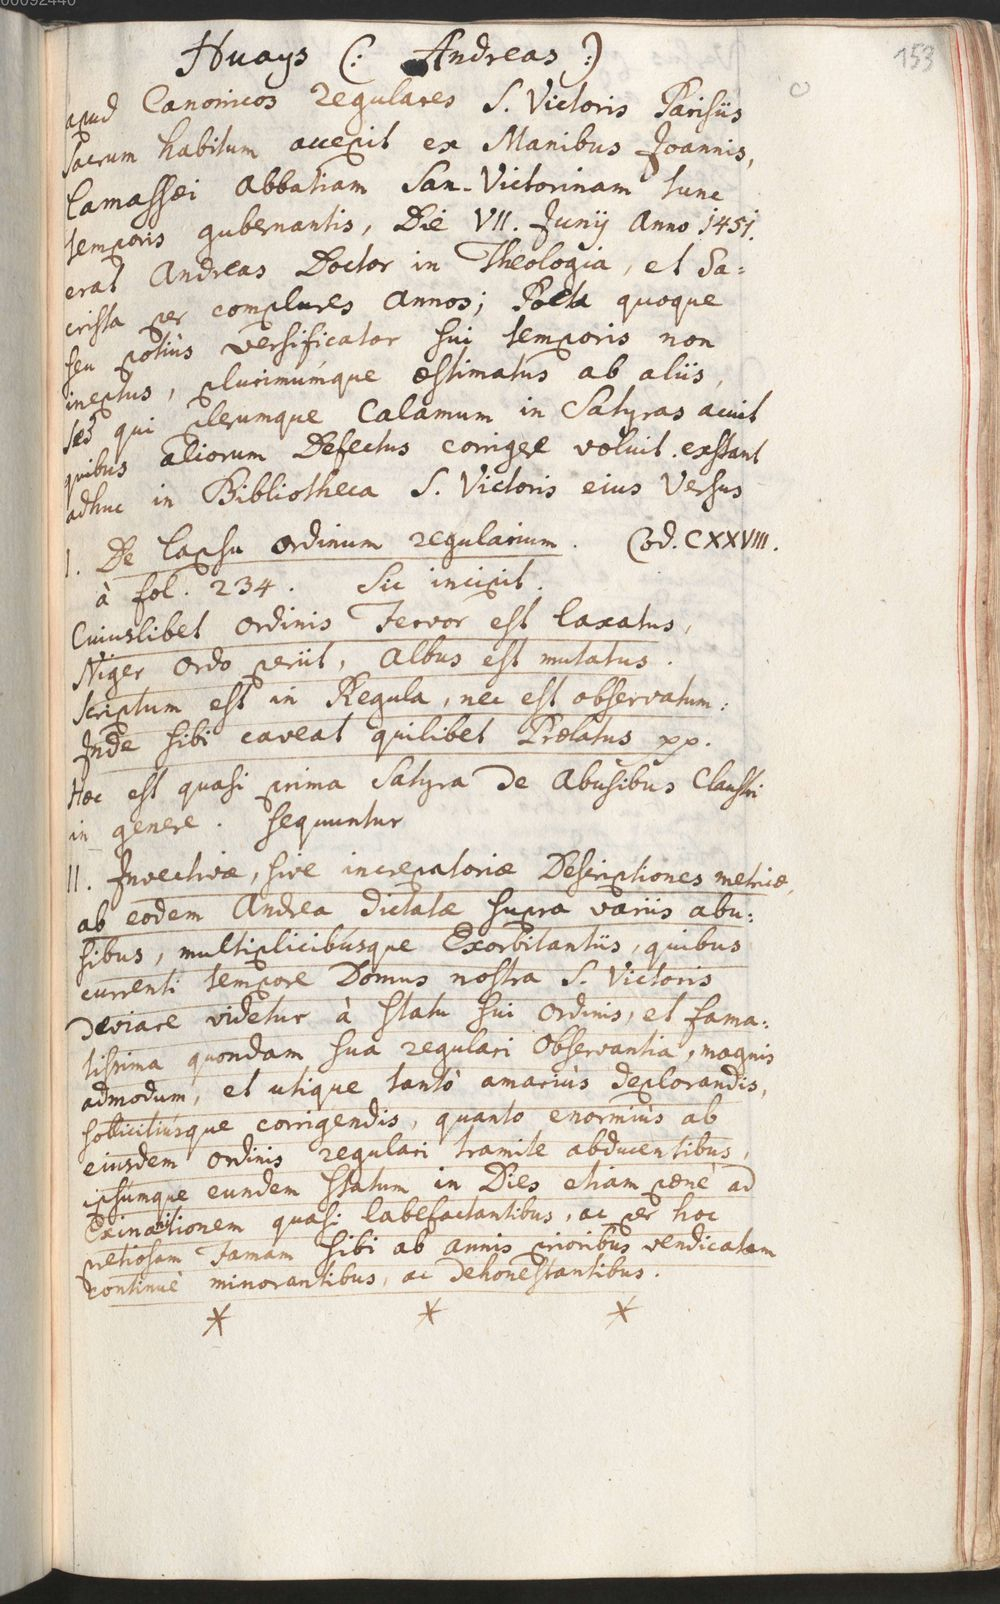 00092440
153
Huays (: Andreas :)
apud Canonicos regulares S. Victoris Parisiis
sacrum habitum accepit ex Manibus Joannis,
Lamassei Abbatiam San-Victorinam tunc
temporis gubernantis, Die VII. Junij Anno 1451.
erat Andreas Doctor in Theologia, et Sa:
crista per complures Annos; Poeta quoque
seu potiùs versificator sui temporis non
ineptus, plurimúmque æstimatus ab aliis,
sed qui plerumque Calamum in Satyras acuit
quibus aliorum Defectus corrigere voluit. exstant
adhuc in Bibliotheca S. Victoris eius Versus
I. De lapsu ordinum regularium. Cod. CXXVIII.
à fol. 234. Sic incipit.
Cuiuslibet ordinis Fervor est laxatus,
Niger ordo periit, Albus est mutatus.
Scriptum est in Regula, nec est observatum:
Inde sibi caveat quilibet Prælatus pp.
Hæc est quasi prima Satyra de Abusibus Claustri
in genere. sequuntur
II. Invectivæ, sive increpatoriæ Descriptiones metricæ,
ab eodem Andrea dictatæ supra variis abu:
sibus, multiplicibúsque Exorbitantiis, quibus
currenti tempore Domus nostra S. Victoris
deviare videtur à statu sui ordinis, et fama:
tissima quondam sua regulari Observantia, magnis
admodum, et utique tantò amariùs deplorandis,
sollicitiúsque corrigendis, quanto enormiùs ab
eiusdem ordinis regulari tramite abducentibus,
ipsúmque eundem statum in Dies etiam pæne ad
Exinanitionem quasi labefactantibus, ac per hoc
pretiosam Famam sibi ab annis prioribus vendicatam
continuè minorantibus, ac dehonestantibus.
* * *